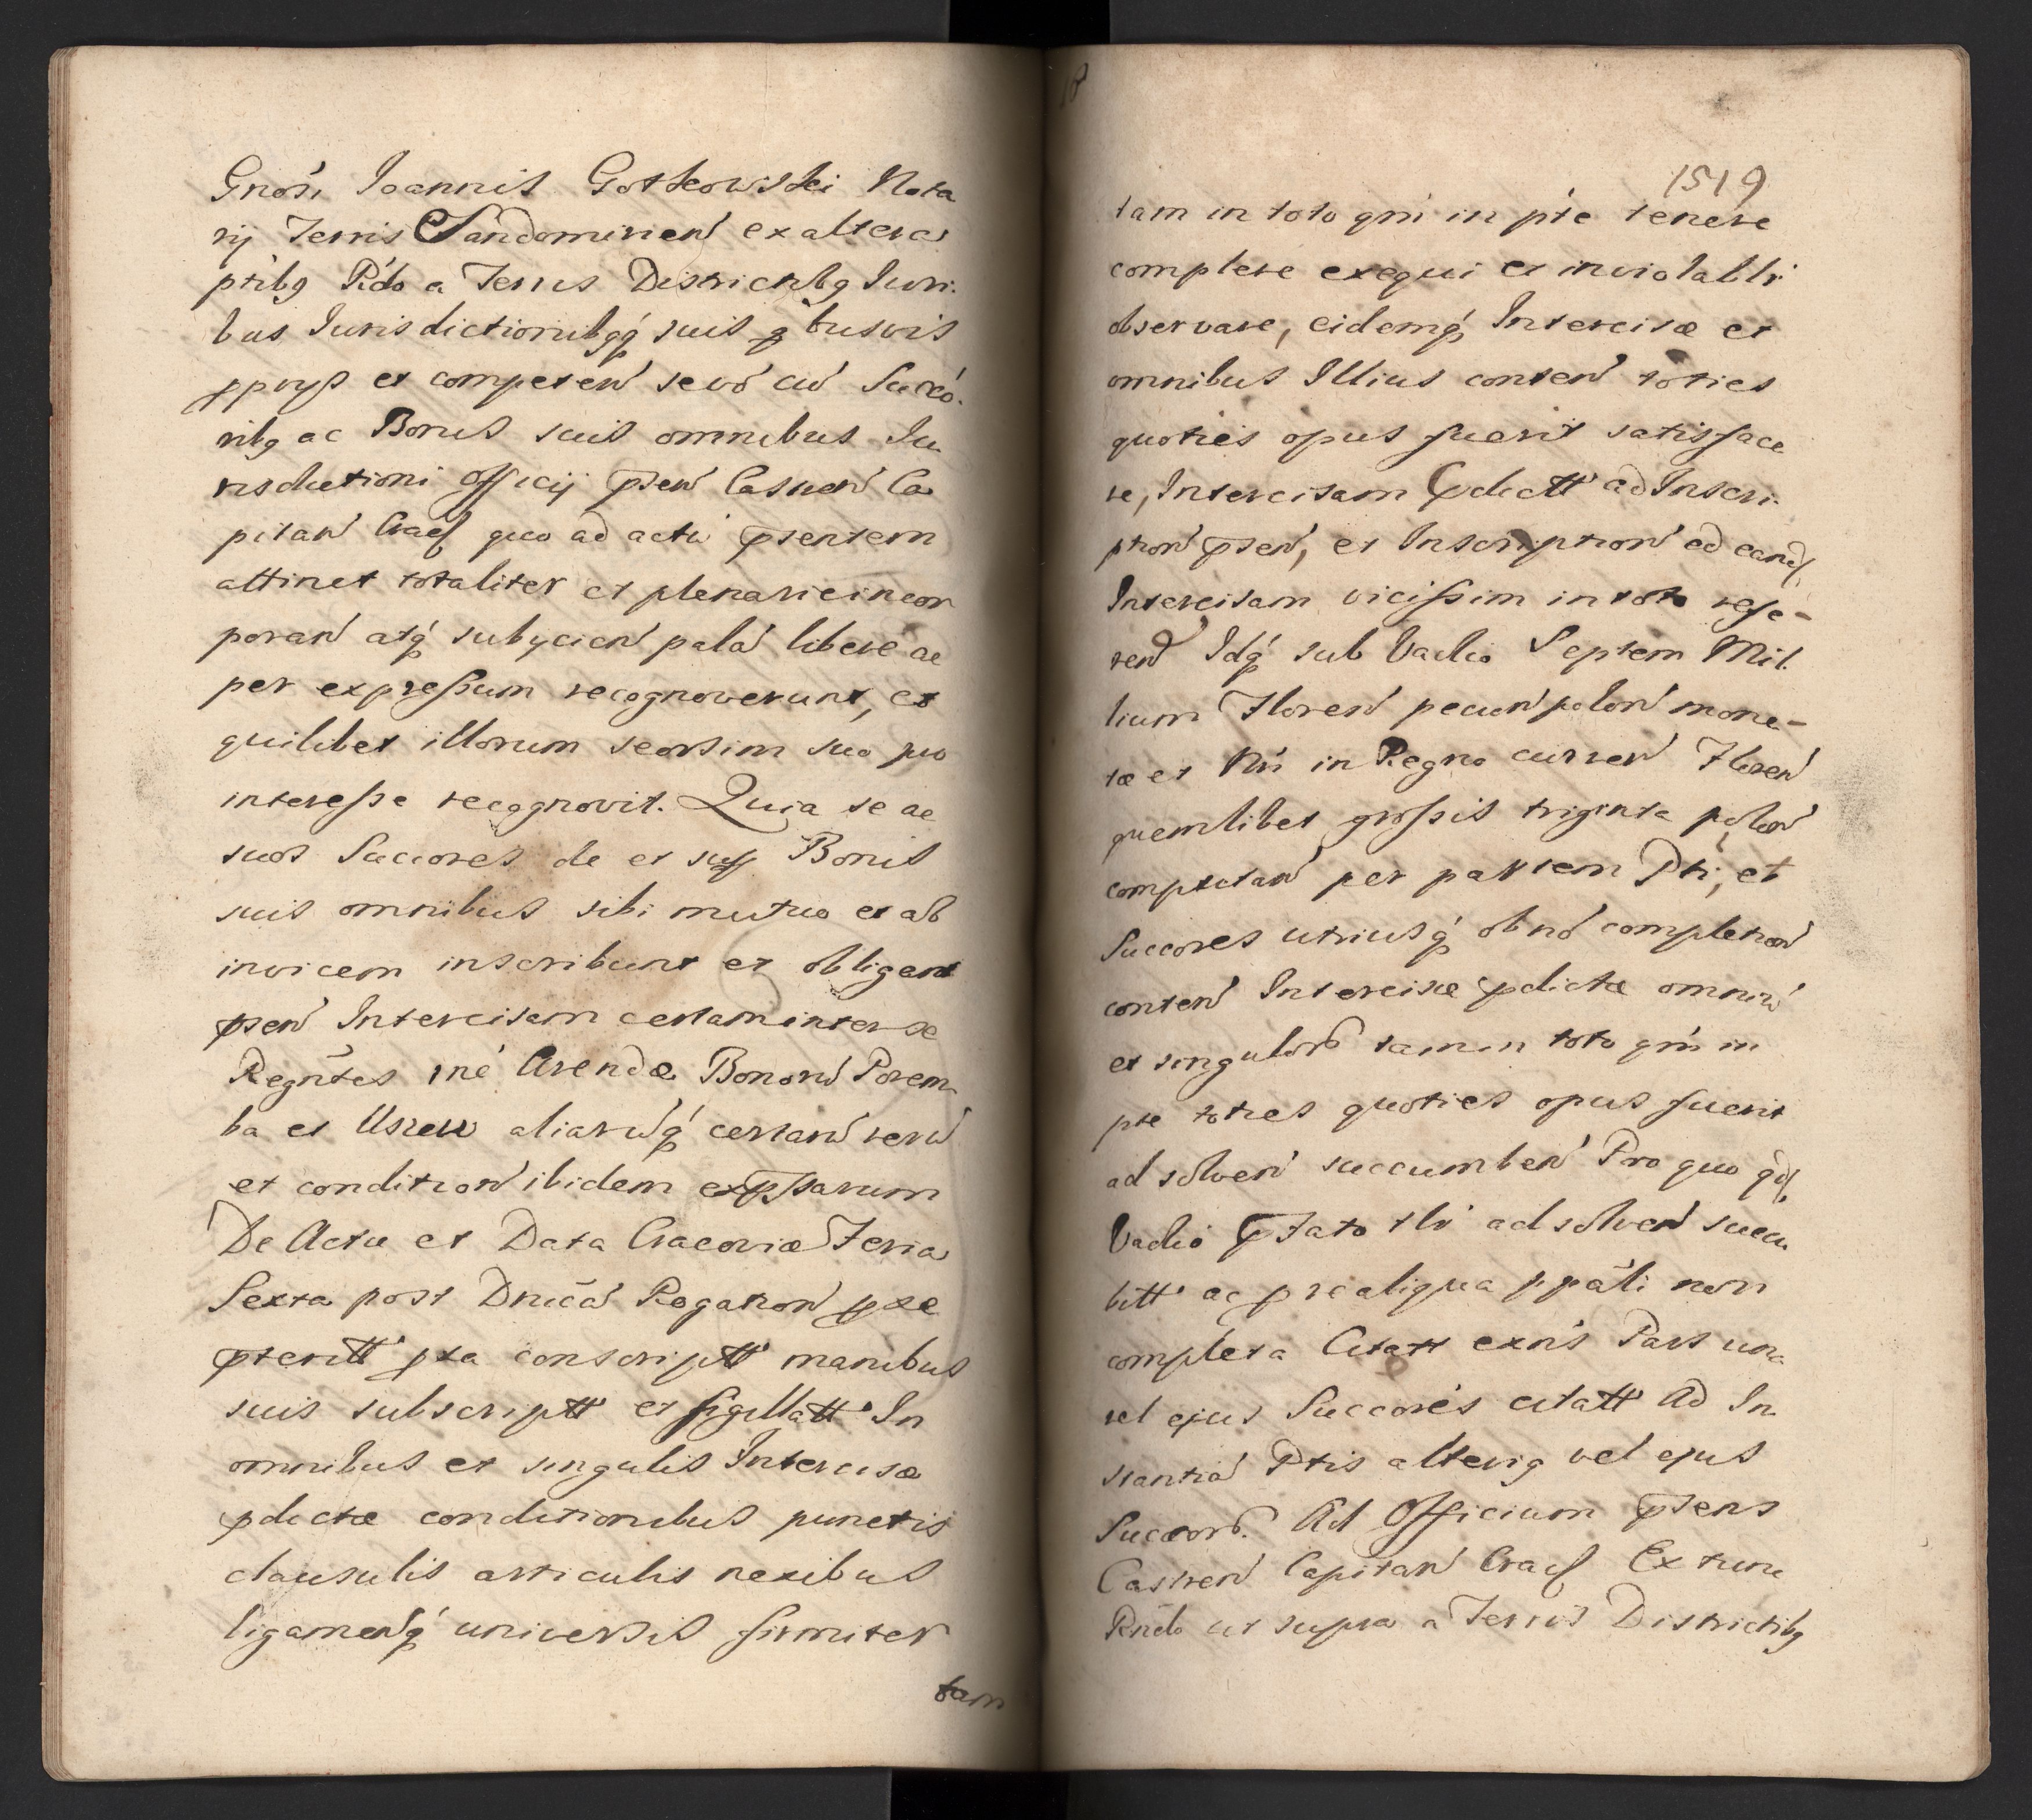 Gnosi Joannis Gotkowski Nota
rij Terris Sandomirien ex altera
ptibq Rndo a Terris Districtibq Juri
bus Jurisdictionibqq suis qbusvis
ppriis et competen sevo cu Succo
ribq ac Bonis suis omnibus Ju
risdictioni Officij psen Castren Ca
pitan Crac quo ad actu psentem
attinet totaliter et plenarie incor
poran atq subijcien pala libere ac
per expressum recognoverunt, et
quilibet illorum seorsim suo pro
interesse recognovit. Quia se ac
suos Succores de et sup Bonis
suis omnibus sibi mutuo et ab
invicem inscribunt et obligant
psen Intercisam certam inter se
Regntes rne Arendæ Bonoru Porem
ba et aliaruq certaru reru
et condition ibidem expssarum
De Actu et Data Cracoviæ Feria
Sexta post Dnica Rogation pxe
pteritt pta conscriptt manibus
suis subscriptt et sigillatt In
omnibus et singulis Intercisæ
pdictæ conditionibus punctis
clausulis articulis nexibus
ligamenq universis firmiter
tam
1519
tam in toto qm in pte tenere
complere exequi et inviolablr
observare, eidemq Intercisæ et
omnibus Illius conten toties
quoties opus fuerit satisface
re, Intercisam pdictt ad Inscri
ption psen, et Inscription ad eand
Intercisam vicissim in toto refe-
ren Idq sub Vadio Septem Mil
lium Floren pecun polon mone-
tæ et Nri in Regno curren Floren
quemlibet grossis triginta polon
computan per partem Pti, et
Succores utriusq ob no completion
conten Intercisæ pdictæ omniu
et singulor tam in toto qm in
pte toties quoties opus fuerit
ad solven succumben Pro quo qd
Vadio pfato tli ad solven succu
bitt ac pro aliqua ppali non
completa Citatt exns Pars una
vel ejus Succores citatt Ad In
stantia Ptis alteriq vel ejus
Succor. Ad Officium psens
Castren Capitan Crac Ex tunc
Rndo ut supra a Terris Districtibq